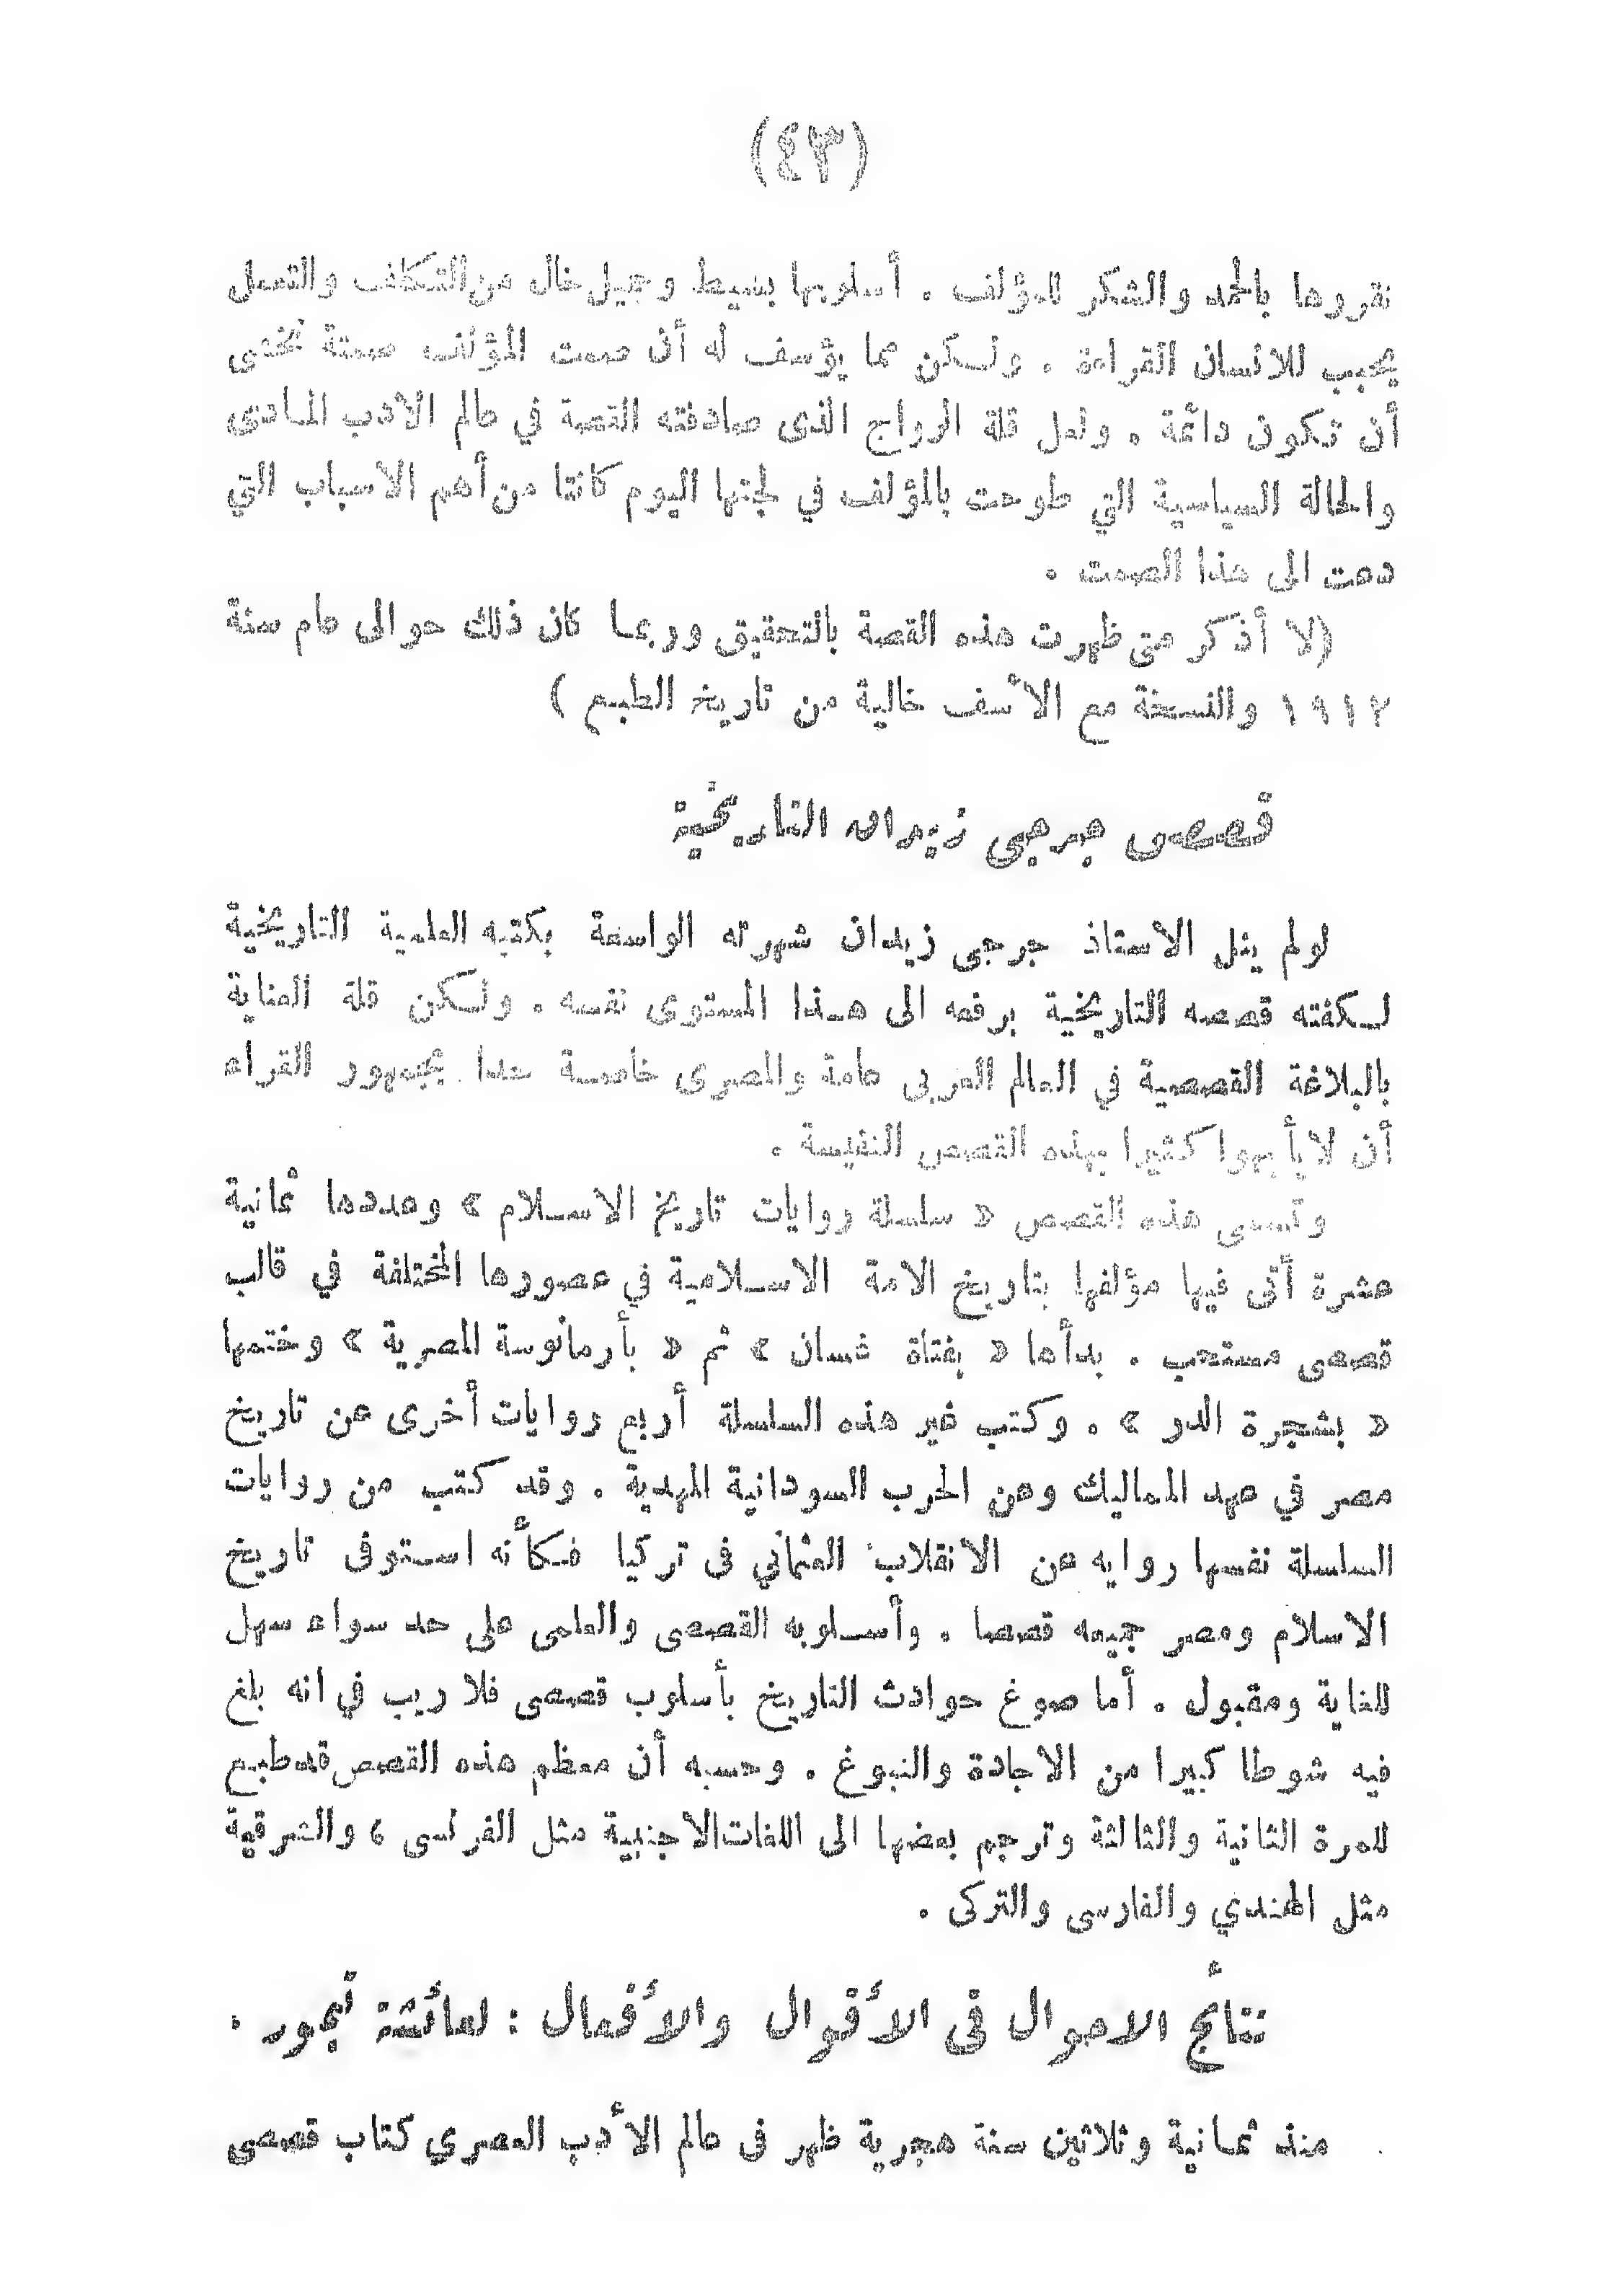 (٤٣)
نقررها بالحمد والشكر للمؤلف . أسلوبها بسيط وجميل خال من التكلف والتعمل
يحبب للانسان القراءة . ولكن مما يؤسف له أن صمت المؤلف صمتة نخشى
أن تكون دائمة . ولعل قلة الرواج الذى صادفته القصة في عالم الادب المادى
والحالة السياسية التي طوحت بالمؤلف في لجتها اليوم كانتا من أهم الاسباب التي
دعت الى هذا الصمت .
(لا أذكر متى ظهرت هذه القصة بالتحقيق وربما كان ذلك حوالى عام سنة
١٩١٢ والنسخة مع الأسف خالية من تاريخ الطبع )
قصص جرجى زيدان التاريخية
لو لم ينل الاستاذ جرجى زيدان شهرته الواسعة بكتبه العلمية التاريخية
لكفته قصصه التاريخية برفعه الى هذا المستوى نفسه . ولكن قلة العناية
بالبلاغة القصصية في العالم العربى عامة والمصرى خاصة حدا بجمهور القراء
أن لا يأبهوا كثيرا بهذه القصص النفيسة .
وتسمى هذه القصص « سلسلة روايات تاريخ الاسلام » وعددها ثمانية
عشرة أتى فيها مؤلفها بتاريخ الامة الاسلامية في عصورها المختلفة في قالب
قصصى مستحب . بدأها « بفتاة غسان » ثم « بأرمانوسة المصرية » وختمها
« بشجرة الدر » . وكتب غير هذه السلسلة أربع روايات أخرى عن تاريخ
مصر في عهد المماليك وعن الحرب السودانية المهدية . وقد كتب من روايات
السلسلة نفسها روايه عن الانقلاب العثماني فى تركيا فكأنه استوفى تاريخ
الاسلام ومصر جميعه قصصا . وأسلوبه القصصى والعلمى على حد سواء سهل
للغاية ومقبول . أما صوغ حوادث التاريخ بأسلوب قصصى فلا ريب في انه بلغ
فيه شوطا كبيرا من الاجادة والنبوغ . وحسبه أن معظم هذه القصص قد طبع
للمرة الثانية والثالثة وترجم بعضها الى اللغات الاجنبية مثل الفرنسى ، والشرقية
مثل الهندي والفارسى والتركى .
نتائج الاحوال فى الأقوال والأفعال : لعائشة تيمور .
منذ ثمانية وثلاثين سنة هجرية ظهر فى عالم الأدب العصري كتاب قصصى